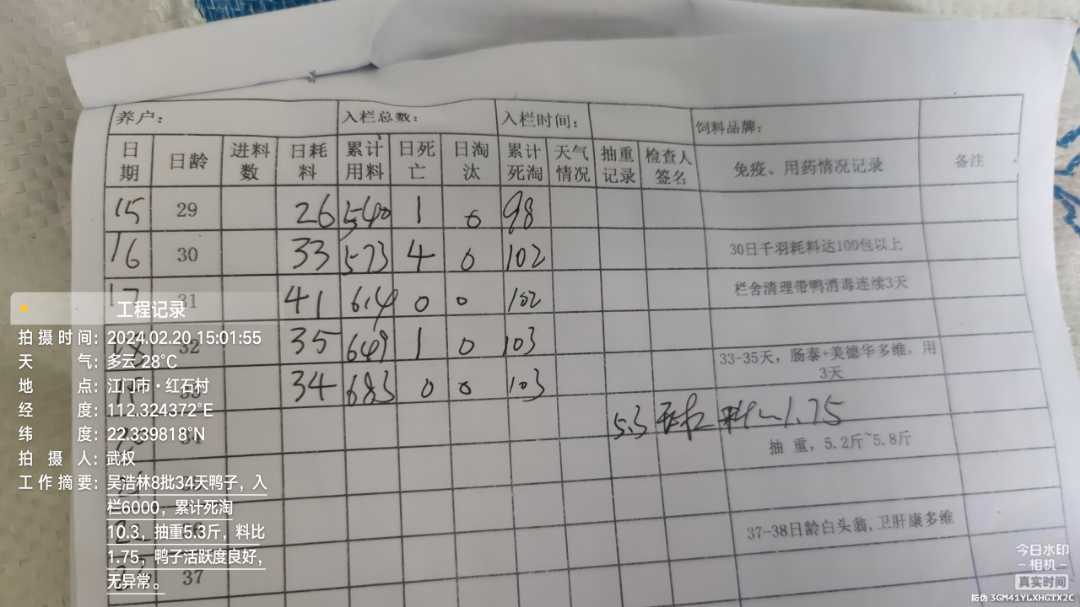 养户： 入栏总数： 入栏时间： 饲料品牌：
日期 日龄 进料数 日耗料 累计用料 日死亡 日淘汰 累计死淘 天气情况 抽重记录 检查人签名 免疫、用药情况记录 备注
15 29 26 540 1 0 98
16 30 33 573 4 0 102 30日千羽耗料达100包以上
17 31 41 614 0 0 102 栏舍清理带鸭消毒连续3天
32 35 649 1 0 103
33-35天，肠泰+美德华多维，用3天
34 683 0 0 103
5.3 料~1.75
抽 重，5.2斤~5.8斤
37-38日龄白头翁,卫肝康多维
37
工程记录
拍摄时间：2024.02.20 15:01:55
天气：多云 28°C
地点：江门市·红石村
经度：112.324372°E
纬度：22.339818°N
拍摄人：武权
工作摘要：吴浩林8批34天鸭子，入
栏6000，累计死淘
10.3，抽重5.3斤，料比
1.75，鸭子活跃度良好，
无异常。
今日水印
相机
真实时间
防伪 3GM41YLXHGTX2C